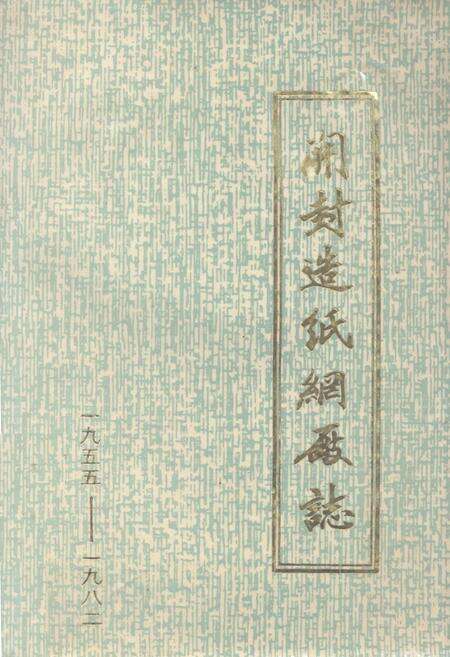 開封造紙網廠誌
一九五五——一九八二